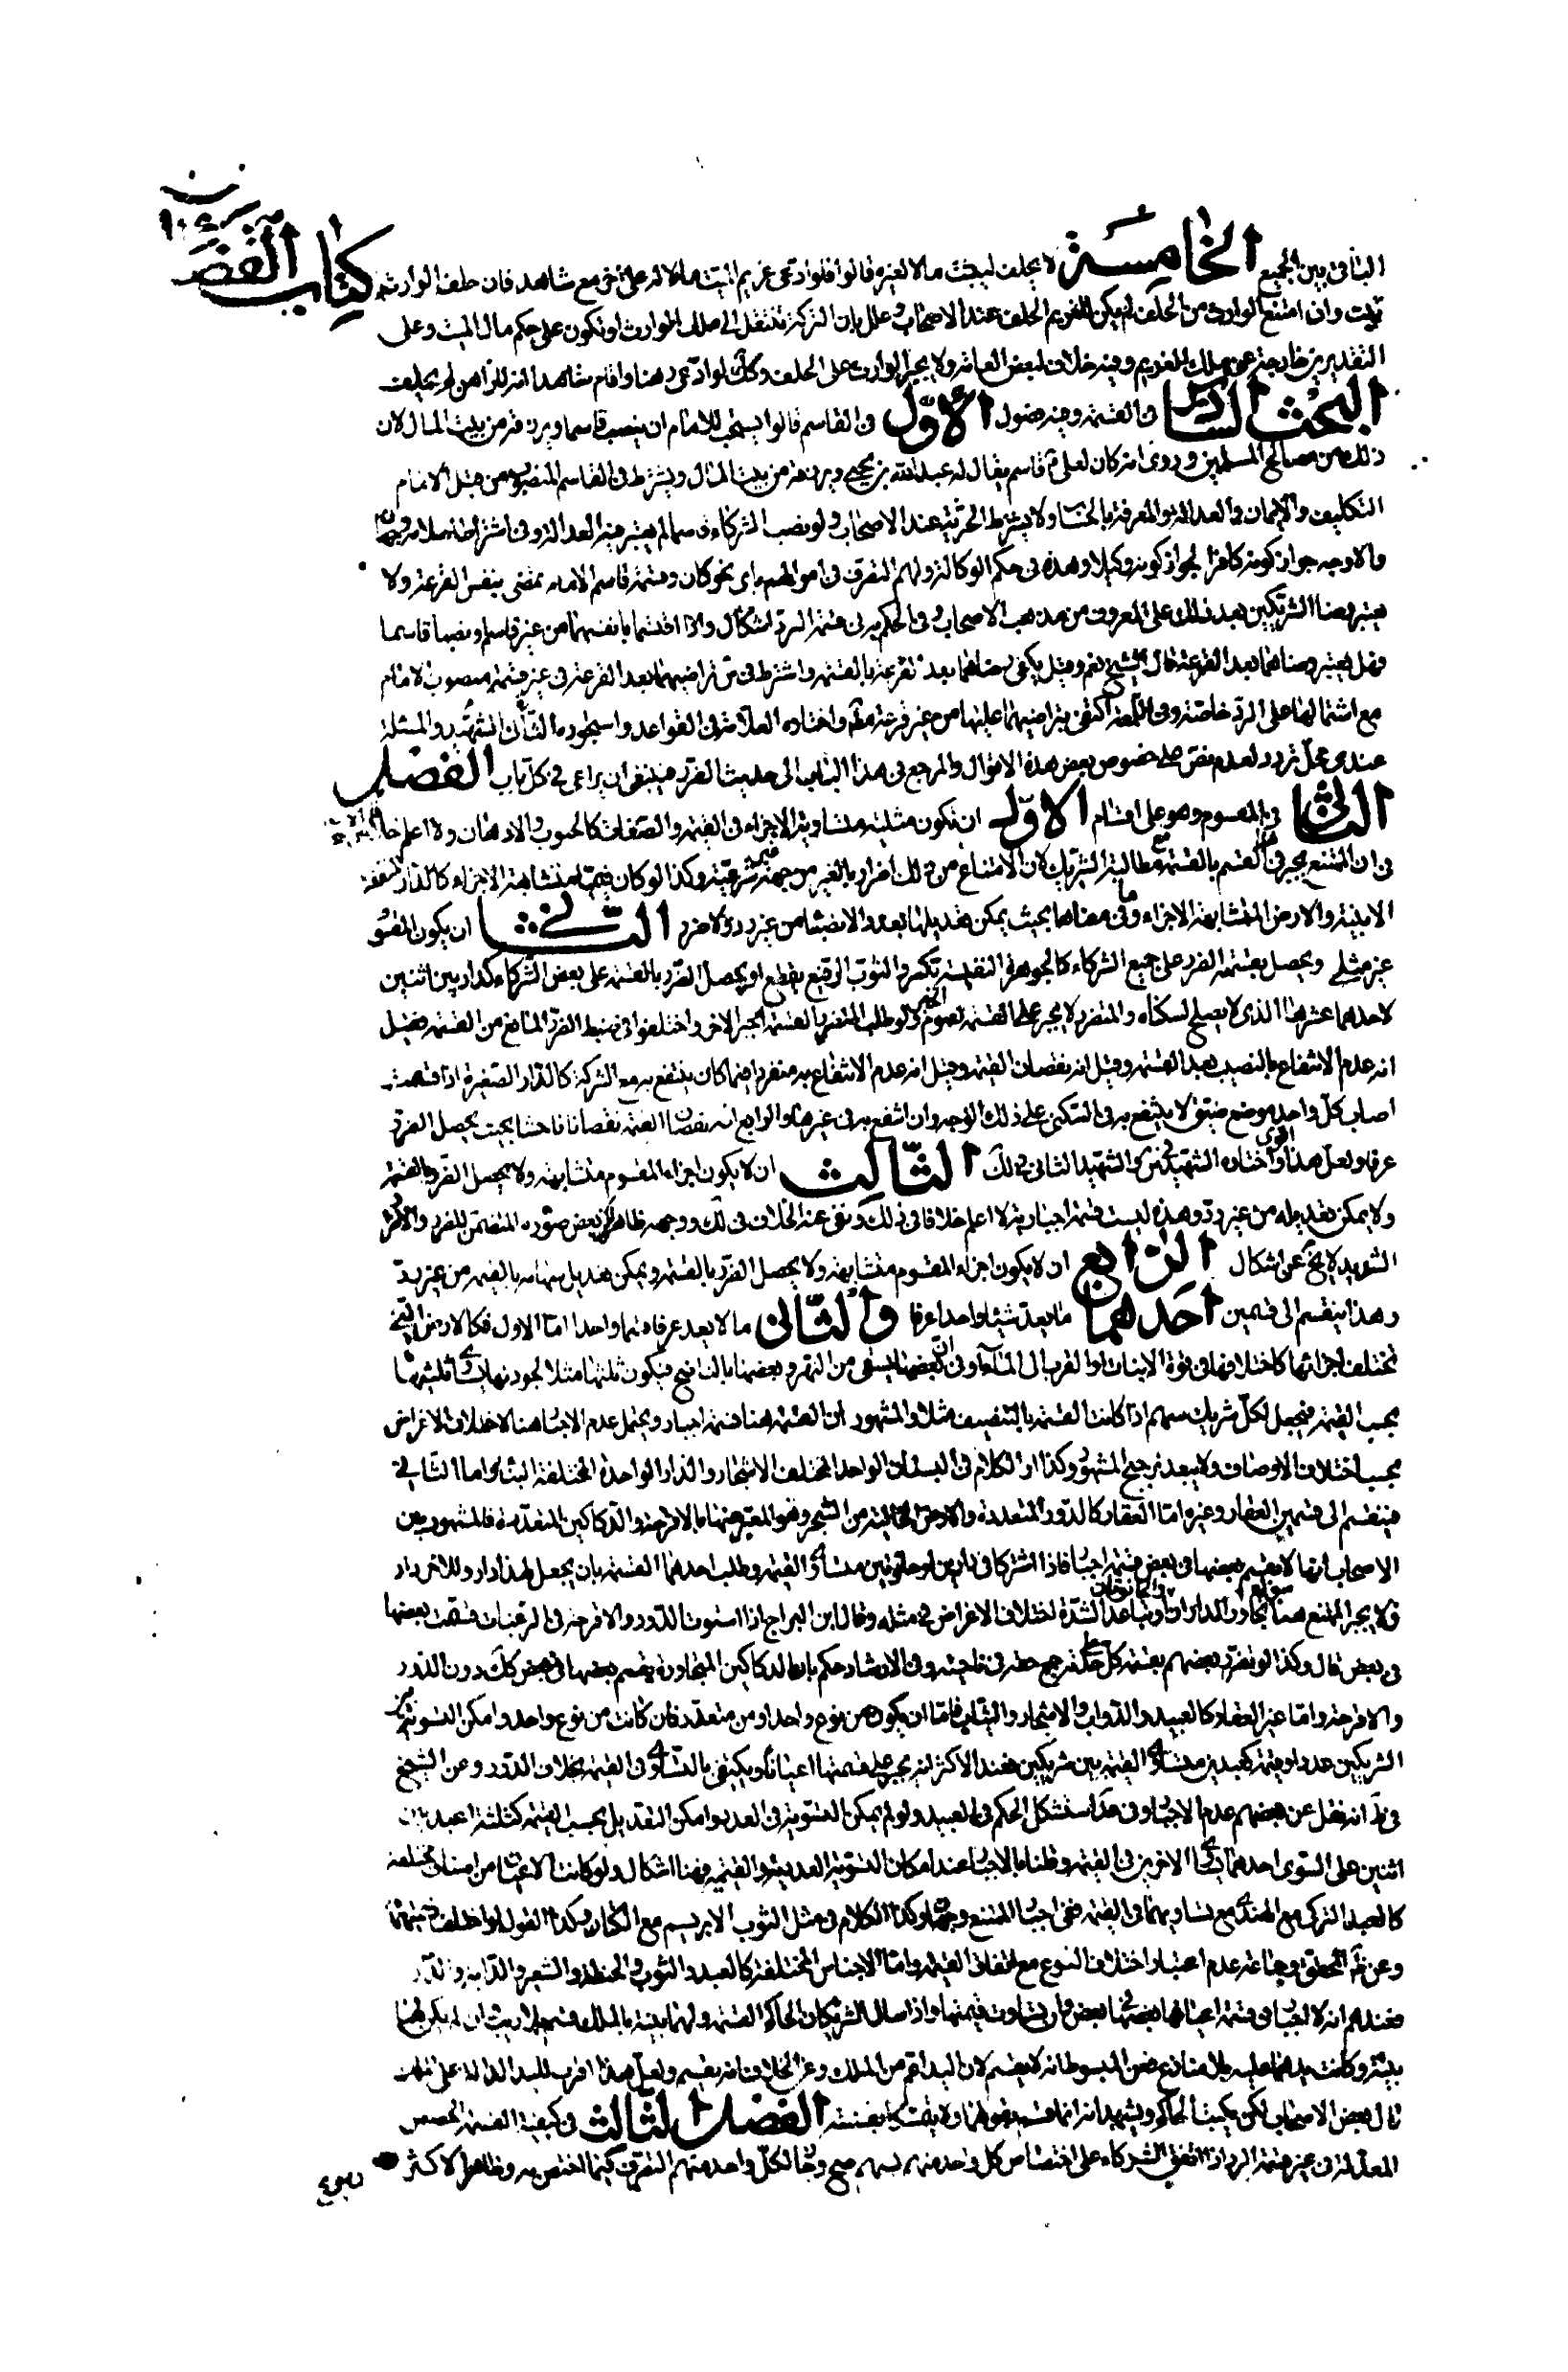 كتاب القضا
الباقى بين الجميع الخامسة لا يحلف ليثبت مالا لغيره قالوا فلو ادعى غريم الميت مالا له على اخر مع شاهد فان حلف الوارث
ثبت وان امتنع الوارث من الحلف لم يكن للغريم الحلف عند الاصحاب وعلل بان التركة تنتقل الى ملك الوارث او تكون على حكم مال الميت وعلى
التقديرين خارجة عن ملك الغريم وفيه خلاف لبعض العامة ولا يجبر الوارث على الحلف وكك لو ادعى رهنا واقام شاهدا انه للراهن لم يحلف
البحث السادس فى القسمة وفيه فصول الاول فى القاسم قالوا يستحب للامام ان ينصب قاسما ويرزقه من بيت المال لان
ذلك من مصالح المسلمين وروى انه كان لعلى ع قاسم يقال له عبد الله بن يحيى ويرزقه من بيت المال ويشترط فى القاسم المنصوب من قبل الامام
التكليف والايمان والعدالة والمعرفة بالحساب ولا يشترط الحرية عند الاصحاب ولو نصب الشركاء قاسما لم يعتبر فيه العدالة وفى اشتراط اسلامه وجهان
والاوجه جواز كونه كافرا لجواز كونه وكيلا وهذه فى حكم الوكالة ولهم التفرق فى اموالهم باى نحو كان وقسمة قاسم الامام تمضى بنفس القرعة ولا
يعتبر رضا الشريكين بعد ذلك على المعروف من مذهب الاصحاب وفى الحكم به فى قسمة الرد اشكال واذا اقتسما بانفسهما من غير قاسم او نصبا قاسما
فهل يعتبر رضاهما بعد القرعة قال الشيخ نعم وقيل يكفى رضاهما بعد القرعة بالقسمة واشترط فى س تراضيهما بعد القرعة فى غير قسمة منصوب الامام
مع اشتمالها على الرد خاصة وفى اللمعة اكتفى بتراضيهما عليها من غير قرعة مطلقا واختاره العلامة فى القواعد واستجوده الشهيد الثانى والمسئلة
عندى محل تردد لعدم نص على خصوص بعض هذه الاقوال والمرجع فى هذا الباب الى حديث الضرر فينبغى ان يراعى فى كل باب الفصل
الثانى فى المقسوم وهو على اقسام الاول ان تكون مثلية متساوية الاجزاء فى القيمة والصفات كالحبوب والادهان ولا اعلم خلافا
فى ان الممتنع يجبر فى القسم بالقسمة مع مطالبة الشريك لان الامتناع من ذلك اضرار بالغير من جهة شرعية وكذا لو كان قيميا متشابهة الاجزاء كالدار المتفقة
الابنية والارض المتشابهة الاجزاء وما فى معناها بحيث يمكن تعديلها بعدد الانصباء من غير رد ولا ضرر الثانى ان يكون المقسوم
غير مثلى ويحصل بقسمته الضرر على جميع الشركاء كالجوهرة النفيسة تكسر والثوب الرفيع يقطع او يحصل الضرر بالقسمة على بعض الشركاء كدار بين اثنين
لاحدهما عشرها الذى لا يصلح لسكناه والمتضرر لا يجبر على القسمة لعموم الخبر ولو طلب المتضرر القسمة يجبر الاخر واختلفوا فى ضبط الضرر المانع من القسمة فقيل
انه عدم الانتفاع بالنصيب بعد القسمة وقيل انه نقصان القيمة وقيل انه عدم الانتفاع به منفردا فيما كان ينتفع به مع الشركة كالدار الصغيرة اذا قسمت
اصاب كل واحد موضع ضيق لا ينتفع به فى السكنى على ذلك الوجه وان انتفع به فى غيرها والرابع انه نقصان القيمة نقصانا فاحشا بحيث يحصل الضرر
عرفا ولعل هذا اقوى واختاره الشهيد فى س والشهيد الثانى فى لك الثالث ان لا يكون اجزاء المقسوم متشابهة ولا يحصل الضرر بالقسمة
ولا يمكن تعديله من غير رد وهذه ليست قسمة اجبارية لا اعلم خلافا فى ذلك ونفى عنه الخلاف فى لك ووجهه ظاهر فى بعض صوره المتضمن للضرر والاكثر
الشهيد لا يخ عن اشكال الرابع ان لا يكون اجزاء المقسوم متشابهة ولا يحصل الضرر بالقسمة ويمكن تعديل سهامه بالقيمة من غير رد
وهذا ينقسم الى قسمين احدهما ما يعد شيئا واحدا عرفا والثانى ما لا يعد عرفا شيئا واحدا اما الاول فكالارض التى
تختلف اجزائها كاختلافها فى قوة الانبات او القرب الى الماء وفى ان بعضها يسقى من النهر وبعضها بالناضح فيكون ثلثها مثلا لجودتها يساوى ثلثيها
بحسب القيمة فيجعل لكل شريك سهم اذا كانت القسمة بالتنصيف مثلا والمشهور ان القسمة هنا قسمة اجبار ويحتمل عدم الاجبار هنا لاختلاف الاغراض
بحسب اختلاف الاوصاف ولا يبعد ترجيح المشهور وكذا الكلام فى البستان الواحد المختلف الاشجار والدار الواحدة المختلفة البناء واما الثانى
فينقسم الى قسمين العقار وغيره اما العقار كالدور المتعددة والارض الخالية من الشجر وهو المعبر عنها بالاقرحة والدكاكين المتعددة فالمشهور بين
الاصحاب انها لا يقسم بعضها فى بعض قسمة اجبار فاذا اشتركا فى دارين او حانوتين متساوى القيمة وطلب احدهما القسمة بان يجعل لهذا دار وللاخر دار
فلا يجبر الممتنع هنا سواء تجاور الداران والحانوتان او تباعدا لشدة اختلاف الاغراض فى مثله وقال ابن البراج اذا استوت الدور والاقرحة فى الرغبات قسمت بعضها
فى بعض قال وكذا لو تضرر بعضهم بقسمة كل على حدة جمع حقه فى ناحية وفى الارشاد حكم بان الدكاكين المتجاورة يقسم بعضها فى بعض كك دون الدور
والاقرحة واما غير العقار كالعبيد والدواب والاشجار والثياب فاما ان يكون من نوع واحد او من متعدد فان كانت من نوع واحد وامكن التسوية بين
الشريكين عددا وقيمة كعبدين متساوى القيمة بين شريكين فعند الاكثر انه يجبر على قسمتها اعيانا ويكتفى بالتساوى فى القيمة بخلاف الدور وعن الشيخ
فى ط انه نقل عن بعضهم عدم الاجبار وفى عد استشكل الحكم فى العبيد ولو لم يمكن التسوية فى العدد وامكن التعديل بحسب القيمة كثلثة اعبد بين
اثنين على السوى احدهما يساوى الاخرين فى القيمة وقلنا بالاجبار عند امكان التسوية العددية والقيمية فهنا اشكال ولو كانت الاعيان من اصناف مختلفة
كالعبد التركى مع الهندى مع تساويهما فى القيمة ففى اجبار الممتنع وجهان وكذا الكلام فى مثل الثوب الابريسم مع الكتان وكذا القول لو اختلف قيمتهما
وعن المحقق وجماعة عدم اعتبار اختلاف النوع مع اتفاق القيمة واما الاجناس المختلفة كالعبد والثوب والحنطة والشعير والدابة والدار
فعندهم انه لا اجبار فى قسمة اعيانها بعضها فى بعض وان تساوت قيمتها واذا سال الشريكان الحاكم القسمة ولهما بينة بالملك قسم بلا ريب وان لم يكن لهما
بينة وكانت يدهما عليه بلا منازع فعن المبسوط انه لا يقسم لان اليد اعم من الملك وعن الخلاف انه يقسم ولعل هذا اقرب لليد الدالة على الملك
قال بعض الاصحاب لكن يكتب الحاكم ويشهد انه انما قسم بقولهما الفصل الثالث فى كيفية القسمة الحصص
المعدلة فى غير قسمة الرد اذا اتفق الشركاء على اختصاص كل واحد منهم بسهم صح وجاز لكل واحد منهم التصرف فيما اختص به وظاهر الاكثر